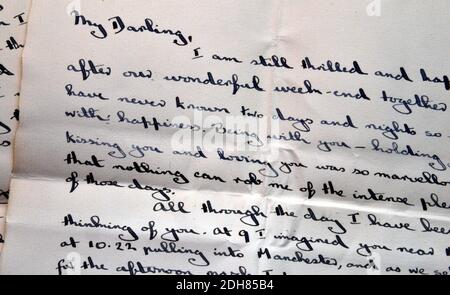 My Darling,
I am still thrilled and hap
after our wonderful week-end together
have never known two days and nights so
with happiness. Being with you - holding
kissing you and loving you was so marvello
that nothing can rob me of the intense plea
of those days.
All through the day I have bee
thinking of you. At 9 I imagined you near
at 10.22 pulling into Manchester, and as we se
for the afternoon
alamy
www.alamy.com
2DH85B4